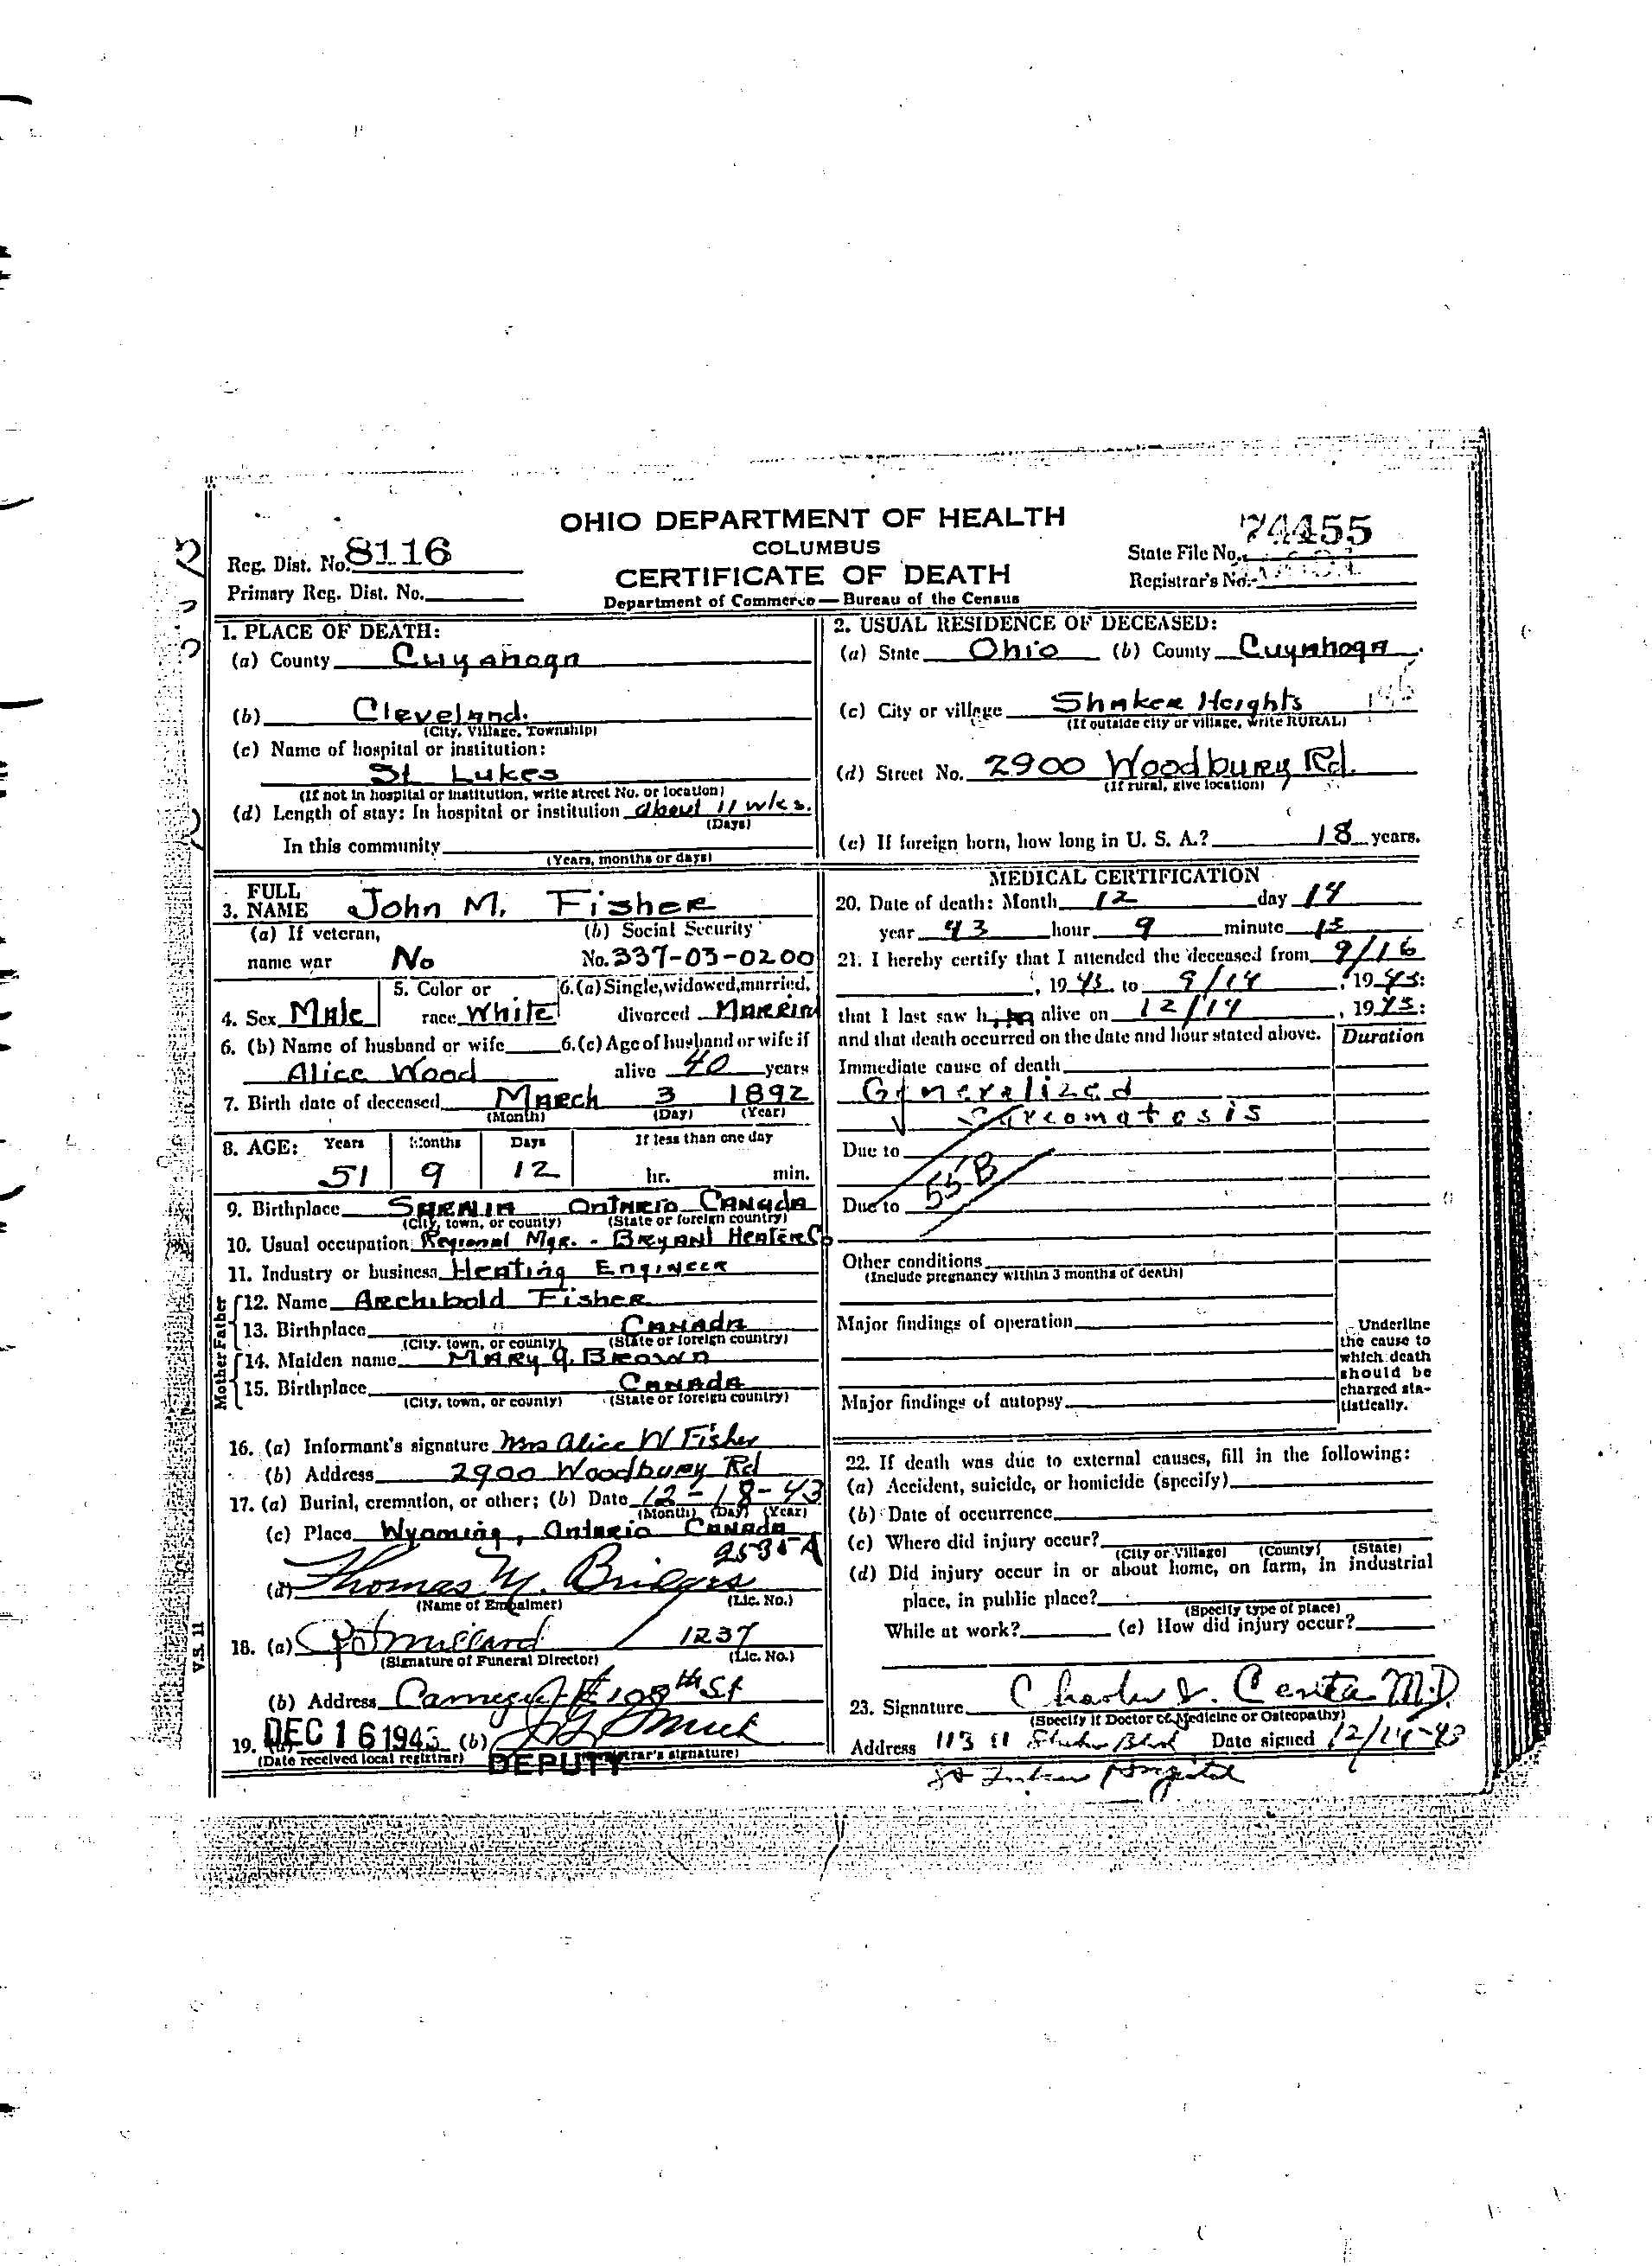 OHIO DEPARTMENT OF HEALTH
COLUMBUS
CERTIFICATE OF DEATH
Department of Commerce — Bureau of the Census
Reg. Dist. No. 8116
Primary Reg. Dist. No.
State File No. 74455
Registrar's No.
1. PLACE OF DEATH:
(a) County Cuyahoga
(b) Cleveland.
(City, Village, Township)
(c) Name of hospital or institution:
St Lukes
(If not in hospital or institution, write street No. or location)
(d) Length of stay: In hospital or institution about 11 wks.
(Days)
In this community
(Years, months or days)
2. USUAL RESIDENCE OF DECEASED:
(a) State Ohio (b) County Cuyahoga
(c) City or village Shaker Heights
(If outside city or village, write RURAL)
(d) Street No. 2900 Woodbury Rd.
(If rural, give location)
(e) If foreign born, how long in U. S. A.? 18 years.
3. FULL NAME John M. Fisher
(a) If veteran, name war No
(b) Social Security No. 337-03-0200
4. Sex Male
5. Color or race White
6. (a) Single, widowed, married, divorced Married
6. (b) Name of husband or wife Alice Wood
6. (c) Age of husband or wife if alive 40 years
7. Birth date of deceased March 3 1892
(Month) (Day) (Year)
8. AGE: Years Months Days If less than one day
51 9 12 hr. min.
9. Birthplace Sarnia Ontario Canada
(City, town, or county) (State or foreign country)
10. Usual occupation Regional Mgr. - Bryant Heater Co
11. Industry or business Heating Engineer
Father
12. Name Archibold Fisher
13. Birthplace Canada
(City, town, or county) (State or foreign country)
Mother
14. Maiden name Mary J. Brown
15. Birthplace Canada
(City, town, or county) (State or foreign country)
16. (a) Informant's signature Mrs Alice W Fisher
(b) Address 2900 Woodbury Rd
17. (a) Burial, cremation, or other; (b) Date 12-18-43
(Month) (Day) (Year)
(c) Place Wyoming, Ontario Canada
2535 A
(d) Thomas M. Bridges
(Name of Embalmer) (Lic. No.)
18. (a) Millard 1237
(Signature of Funeral Director) (Lic. No.)
(b) Address Carnegie & 100th St
19. (a) DEC 16 1943 (b)
(Date received local registrar) (Registrar's signature)
DEPUTY
V.S. 11
MEDICAL CERTIFICATION
20. Date of death: Month 12 day 14
year 43 hour 9 minute 15
21. I hereby certify that I attended the deceased from 9/16
, 1943 to 9/14, 1943:
that I last saw him alive on 12/14, 1943:
and that death occurred on the date and hour stated above. Duration
Immediate cause of death
Generalized
Carcomatosis
Due to
55B
Due to
Other conditions
(Include pregnancy within 3 months of death)
Major findings of operation
Major findings of autopsy
Underline the cause to which death should be charged statistically.
22. If death was due to external causes, fill in the following:
(a) Accident, suicide, or homicide (specify)
(b) Date of occurrence
(c) Where did injury occur?
(City or Village) (County) (State)
(d) Did injury occur in or about home, on farm, in industrial
place, in public place?
(Specify type of place)
While at work? (e) How did injury occur?
23. Signature Charles M.D.
(Specify if Doctor of Medicine or Osteopathy)
Address 11311 Shaker Blvd Date signed 12/14-43
St Lukes Hospital